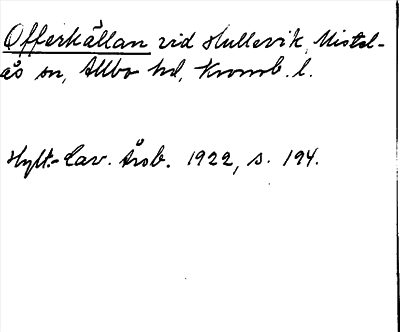 Offerkällan vid Hullevik, Mistel-
ås sn, Allbo hd, Kronob. l.
Hylt.-Cav. Årsb. 1922, s. 194.